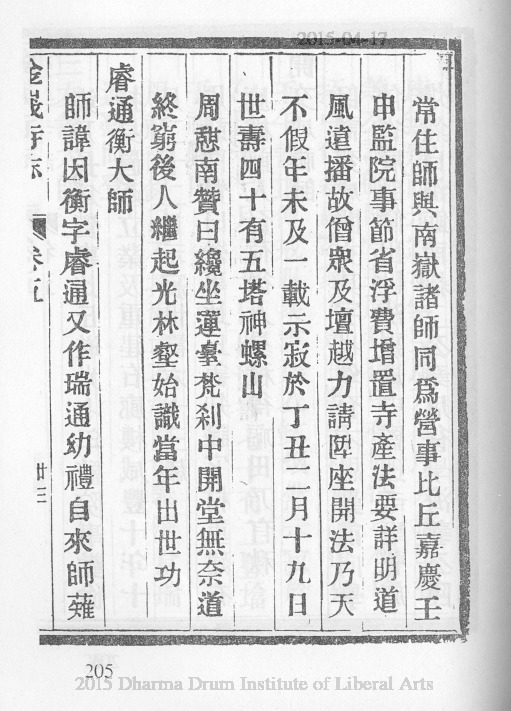 2015-04-17
常住師與南嶽諸師同爲營事比丘嘉慶壬
申監院事節省浮費增置寺產法要詳明道
風遠播故僧衆及壇越力請陞座開法乃天
不假年未及一載示寂於丁丑二月十九日
世壽四十有五塔神螺山
周憇南贊曰纔坐蓮臺梵剎中開堂無奈道
終窮後人繼起光林壑始識當年出世功
睿通衡大師
師諱因衡字睿通又作瑞通幼禮自來師薙
寺志 卷五 廿三
205
2015 Dharma Drum Institute of Liberal Arts